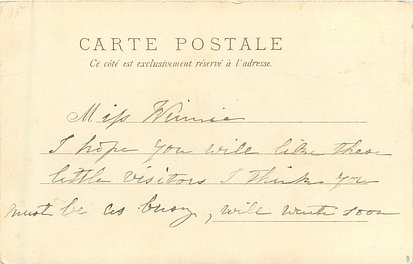 CARTE POSTALE
Ce côté est exclusivement réservé à l'adresse.
Miss Winnie
I hope you will like these
little visitors I think you
must be as busy, will write soon
B